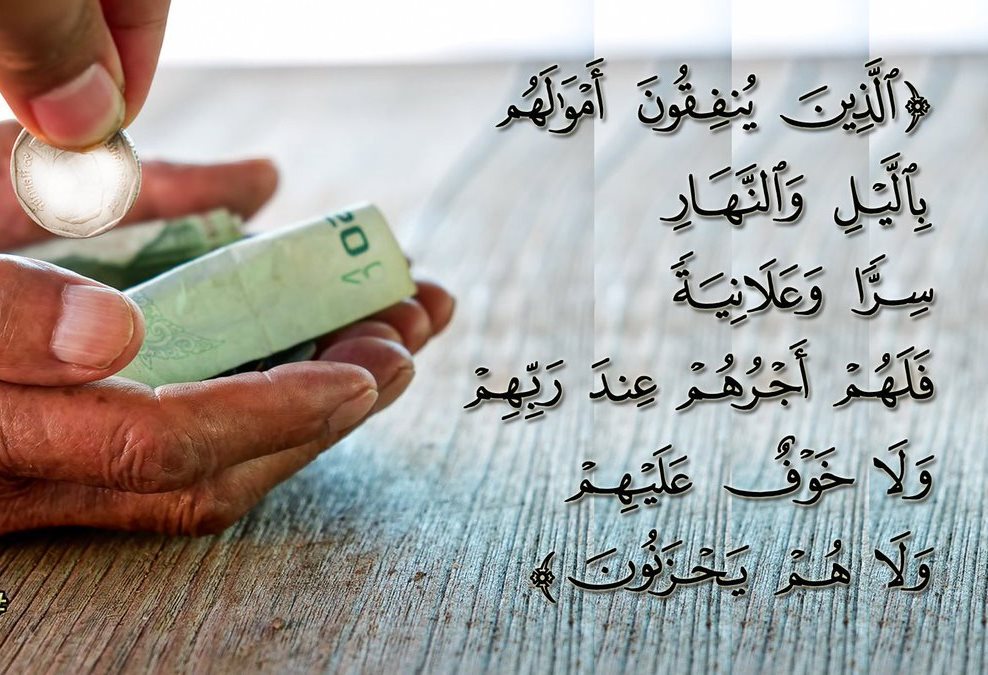 ﴿ٱلَّذِينَ يُنفِقُونَ أَمْوَٰلَهُم
بِٱلَّيْلِ وَٱلنَّهَارِ
سِرًّا وَعَلَانِيَةً
فَلَهُمْ أَجْرُهُمْ عِندَ رَبِّهِمْ
وَلَا خَوْفٌ عَلَيْهِمْ
وَلَا هُمْ يَحْزَنُونَ﴾